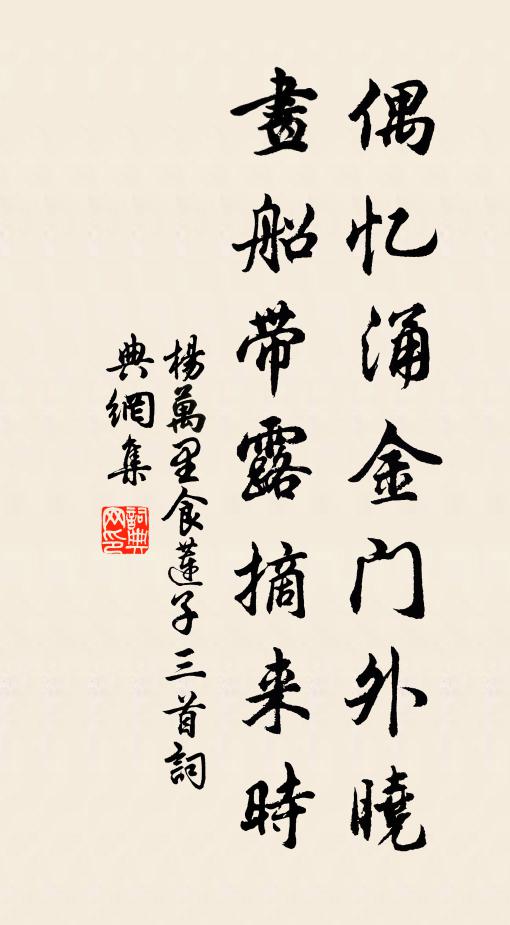 偶忆涌金门外曉
畫船带露摘来時
楊萬里食蓮子三首詞
典網集
詞典
网印